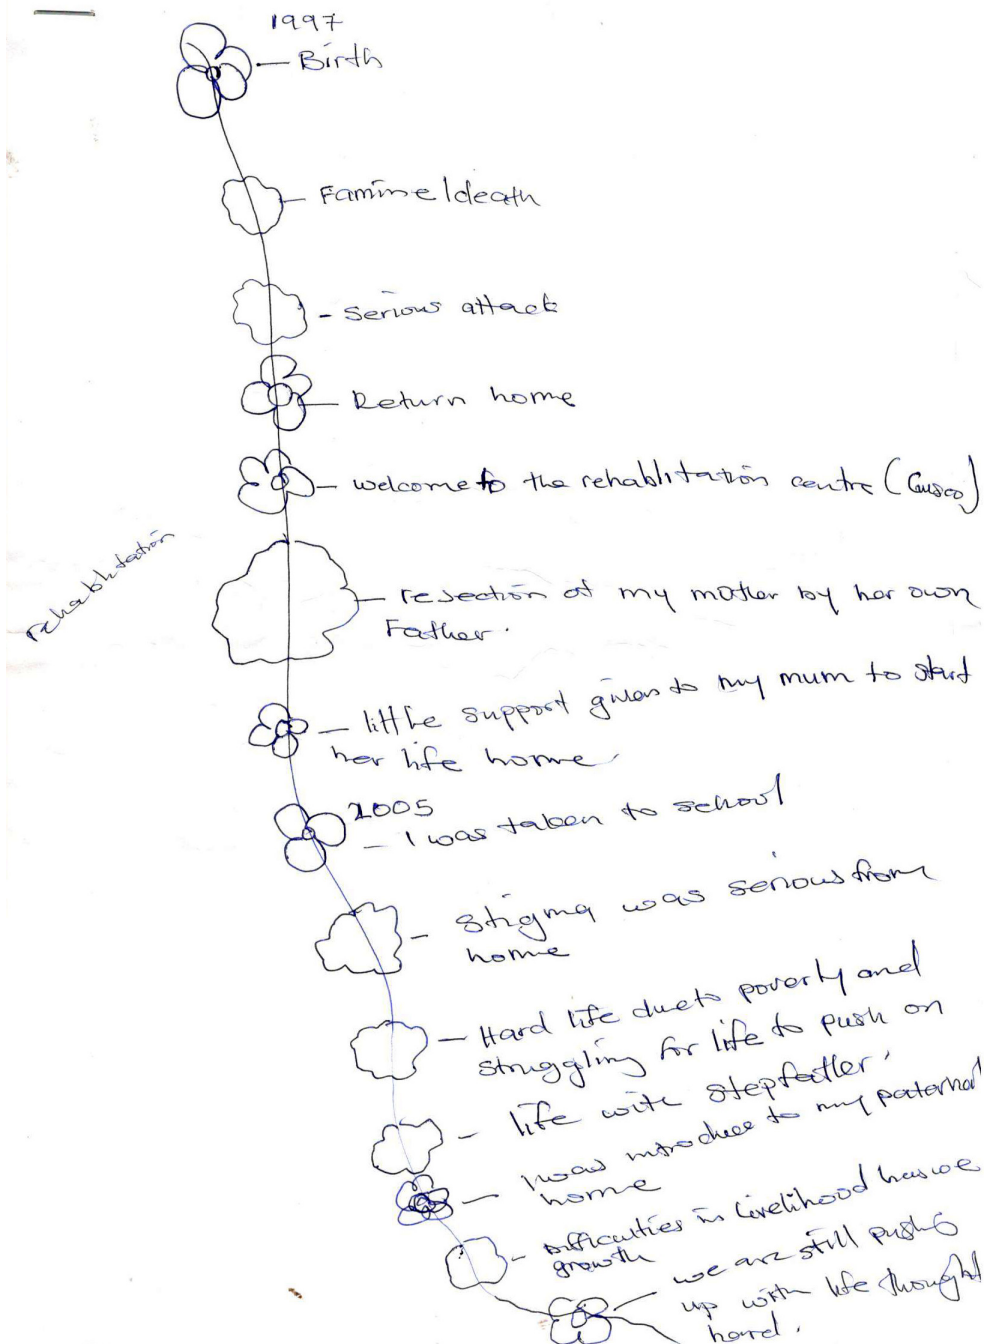 1997
Birth
Famine/death
Serious attack
Return home
welcome to the rehablitation centre (Gusco)
rehablitation
rejection of my mother by her own
Father.
little support given to my mum to start
her life home
2005
I was taken to school
Stigma was serious from
home
Hard life due to poverty and
struggling for life to push on
life with stepfather.
I was introduce to my paternal
home
Difficulties in livelihood has we
growth
we are still pushing
up with life thought
hard.